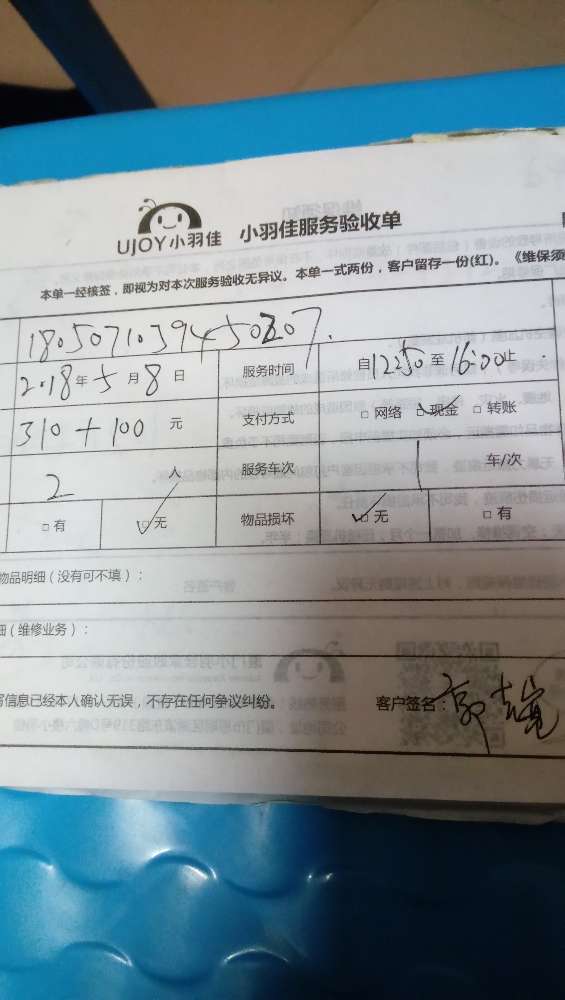 UJOY小羽佳 小羽佳服务验收单
本单一经核签，即视为对本次服务验收无异议。本单一式两份，客户留存一份(红)。《维保须
1805071039450207
2018年5月8日 服务时间 自12:50至16:00止
310+100元 支付方式 □网络 ☑现金 □转账
2人 服务车次 1车/次
□有 ☑无 物品损坏 ☑无 □有
物品明细（没有可不填）：
细（维修业务）：
写信息已经本人确认无误，不存在任何争议纠纷。 客户签名：